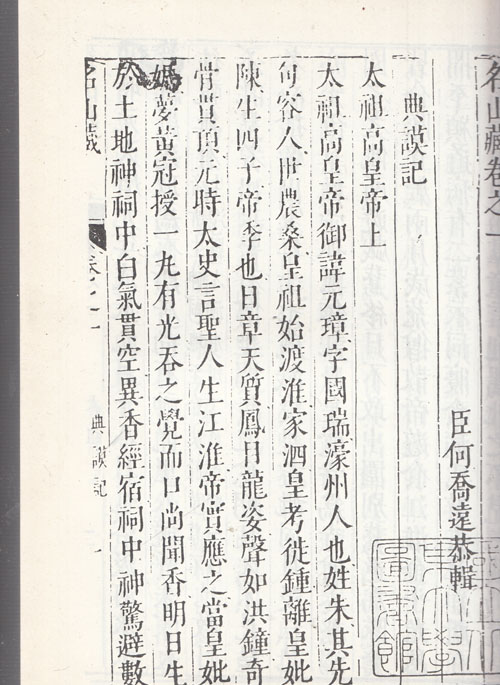 名山藏卷之一
臣何喬遠恭輯
典謨記
太祖高皇帝上
太祖高皇帝御諱元璋字國瑞濠州人也姓朱其先
句容人世農桑皇祖始渡淮家泗皇考徙鍾離皇妣
陳生四子帝季也日章天質鳳目龍姿聲如洪鐘奇
骨貫頂元時太史言聖人生江淮帝實應之當皇妣
夢黃冠授一丸有光吞之覺而口尚聞香明日生
於土地神祠中白氣貫空異香經宿祠中神驚避數
名山藏 卷之一 典謨記 一
大學
圖書館